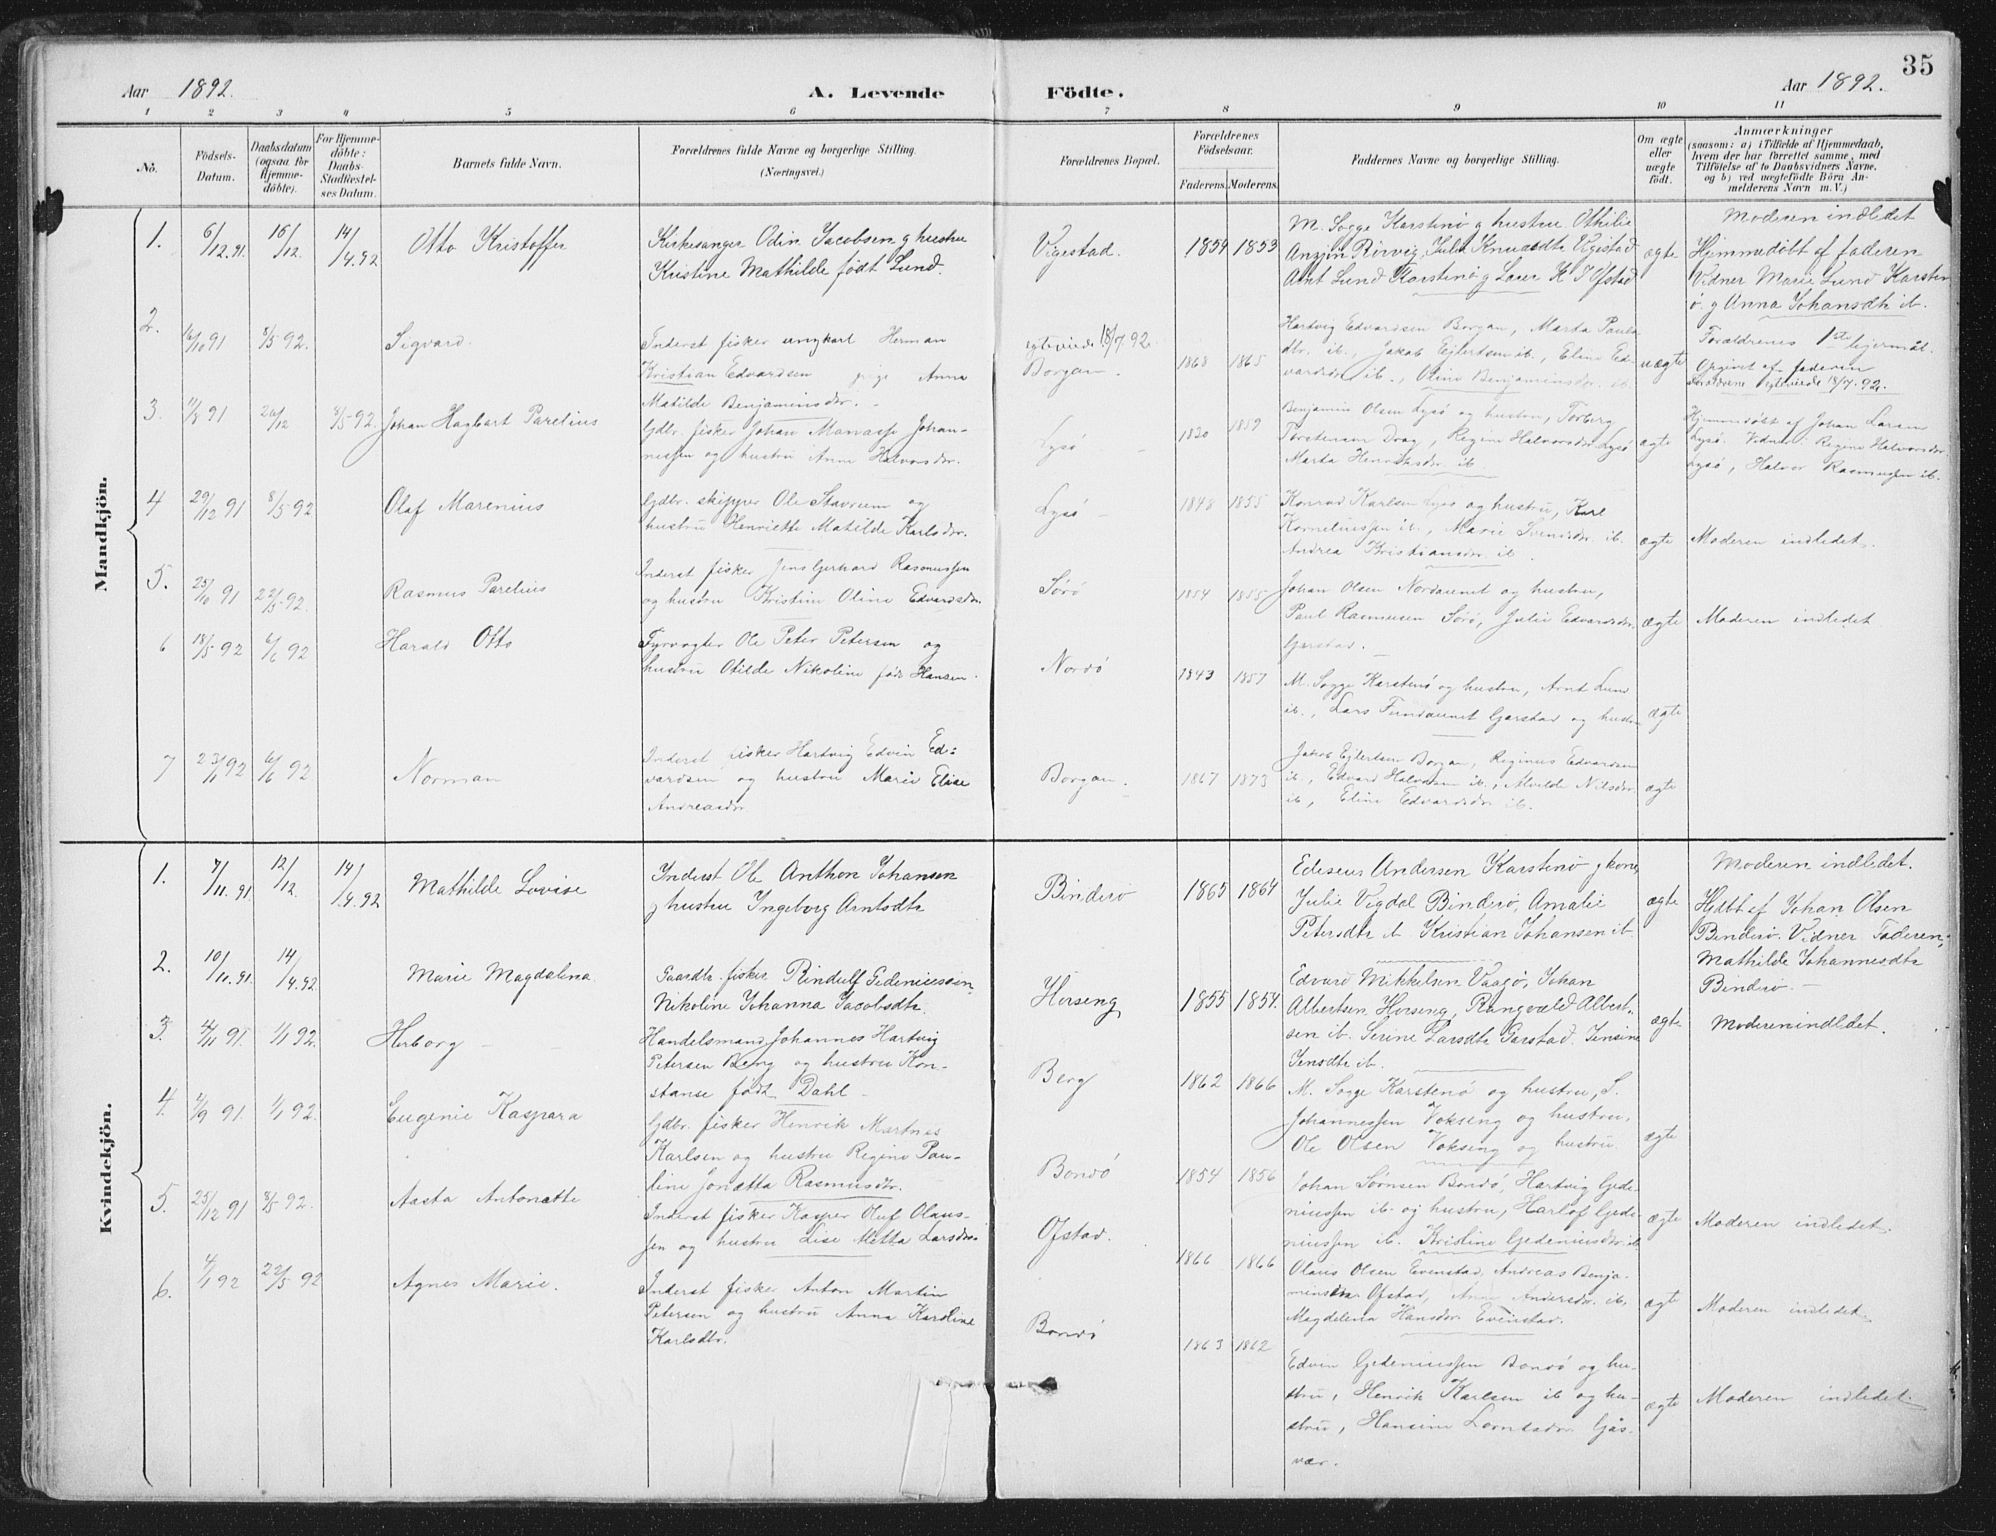 35
Aar 1892.
A. Levende Födte.
Aar 1892.
1 2 3 4 5 6 7 8 9 10 11
No.
Födsels-
Datum.
Daabsdatum
(ogsaa for
Hjemme-
döbte).
For Hjemme-
döbte:
Daabs-
Stadfæstel-
ses Datum.
Barnets fulde Navn.
Forældrenes fulde Navne og borgerlige Stilling.
(Næringsvei.)
Forældrenes Bopæl.
Forældrenes
Födselsaar.
Faderens. Moderens.
Faddernes Navne og borgerlige Stilling.
Om ægte
eller
uægte
födt.
Anmærkninger
(saasom: a) i Tilfælde af Hjemmedaab,
hvem der har forrettet samme, med
Tilföielse af to Daabsvidners Navne,
og b) ved uægtefödte Börn An-
melderens Navn m. V.)
Mandkjön.
1. 6/12.91. 16/12. 14/4.92 Otto Kristoffer
Kirkesanger Odin Jacobsen g hustru
Kristine Mathilde født Lund.
Vigestad.
1854 1853
M. Sogge Karstenø g hustru Othilie
Rørvig, Julie Knudsdtr Vigestad
Arnt Lund Karstenø g Ofstad
ægte
Moderen indledet
Hjemmedøbt af faderen
Vidner Marie Lund Karsten
ø g Anna Johansdtr ib.
2. 16/10 91 8/5 92. Sigvard.
Inderst fisker ungkarl Herman
Kristian Edvardsen pige Anna
Matilde Benjaminsdr.
egteviede 18/7 92.
Borgan.
1868 1865
Hartvig Edvardsen Borgan, Marta Pauls
dtr. ib., Jakob Ejlertsen ib., Eline Ed-
vardsdr ib., Oline Benjaminsdr. ib.
uægte
Forældrenes 1ste lejermål.
Opgivet af faderen
Forældrene egteviede 18/7-92.
3. 11/8 91 26/12 8/5-92 Johan Hagbart Parelius
Gdbr. fisker Johan Manasse Johan-
nessen og hustru Anne Halvorsdr.
Lysø
1830 1859
Benjamin Olsen Lysø og hustru, Torberg
Torstensen Drag, Regine Halvorsdr Lysø
Marta Henriksdr ib.
ægte
Hjemmedøbt af Johan Larsen
Lysø. Vidner: Regine Halvorsdr
Lysø, Halvor Rasmussen ib.
4 29/12 91 8/5-92 Olaf Marenius
Gdbr. skipper Ole Stavrum og
hustru Henriette Matilde Karlsdr.
Lysø
1848 1855
Konrad Karlsen Lysø og hustru, Karl
Korneliussen ib., Marie Svensdr. ib.
Andrea Kristiansdr. ib.
ægte
Moderen indledet.
5. 25/10 91 22/5-92. Rasmus Parelius
Inderst fisker Jens Gerhard Rasmussen
og hustru Kristine Oline Edvardsdr.
Sørø
1854 1855
Johan Olsen Nordaunet og hustru,
Paul Rasmussen Sørø, Julie Edvardsdr.
Garstad.
ægte
Moderen indledet
6 18/5 92 6/6 92 Harald Otto
Fyrvogter Ole Peter Petersen og
hustru Otilde Nikoline født Hansen.
Nordø
1843 1857
M. Sogge Karstenø og hustru, Arnt Lund
ib., Lars Garstad og hustru
ægte
7 23/1 92 6/6 92 Norman
Inderst fisker Hartvig Edvin Ed-
vardsen og hustru Marie Elise
Andreasdr.
Borgan.
1867 1873
Jakob Ejlertsen Borgan, Reginus Edvardsen
ib., Edvard Halvorsen ib., Alvilde Nilsdr.
ib., Eline Edvardsdr ib.
ægte
Kvindekjön.
1. 7/11.91. 12/12 14/4.92 Mathilde Lovise
Inderst Ole Anthon Johansen
g hustru Ingeborg Arntsdtr
Binderø
1865 1864
Edisius Andersen Karstenø g kone,
Julie Vigdal Binderø, Amalie
Petersdtr ib. Kristian Johansen ib.
ægte
Moderen indledet.
Hdbt af Johan Olsen
Binderø. Vidner Faderen,
Mathilde Johannesdtr
Binderø.
2. 10/11.91. 14/4.92 Marie Magdalena.
Gaardbr. fisker Rindulf Gedeniussen,
Nikoline Johanna Jacobsdtr.
Horseng
1855 1854.
Edvard Mikkelsen Vaagø, Johan
Albertsen Horseng, Rangvald Albert-
sen ib. Serine Larsdtr Garstad. Jensine
Jensdtr ib.
ægte
Moderen indledet.
3. 4/11 91. 1/1 92. Herborg
Handelsmand Johannes Hartvig
Petersen Berg og hustru Kon-
stanse født Dahl
Berg
1862 1866
M. Sogge Karstenø og hustru, S.
Johannessen Vokseng og hustru,
Ole Olsen Vokseng og hustru
ægte
4. 4/9 91. 1/1 92. Eugenie Kaspara
Gdbr. fisker Henrik Martnes
Karlsen og hustru Regine Pau-
line Jonetta Rasmusdr.
Bondø
1854 1856
Johan Sørnsen Bondø, Hartvig Gede-
niussen ib. og hustru, Harlof Gede-
niussen ib. Kristine Gedeniusdr. ib
ægte
Moderen indledet.
5. 25/12 91 8/5 92. Aasta Antonette
Inderst fisker Kasper Oluf Olaus-
sen og hustru Lise Metta Larsdr.
Ofstad.
1866 1866
Olaus Olsen Evenstad, Andreas Benja-
minsen Ofstad, Andersdr. ib,
Magdelena Hansdr. Evenstad.
ægte
Moderen indledet.
6. 4/1 92 22/5 92 Agnes Marie.
Inderst fisker Anton Martin
Petersen og hustru Anna Karoline
Karlsdtr.
Bondø
1863 1862
Edvin Gedeniussen Bondø og hu-
stru, Henrik Karlsen ib og hu-
stru, Hansine Lorntsdr. Gjæs-
vær.
ægte
Moderen indledet.